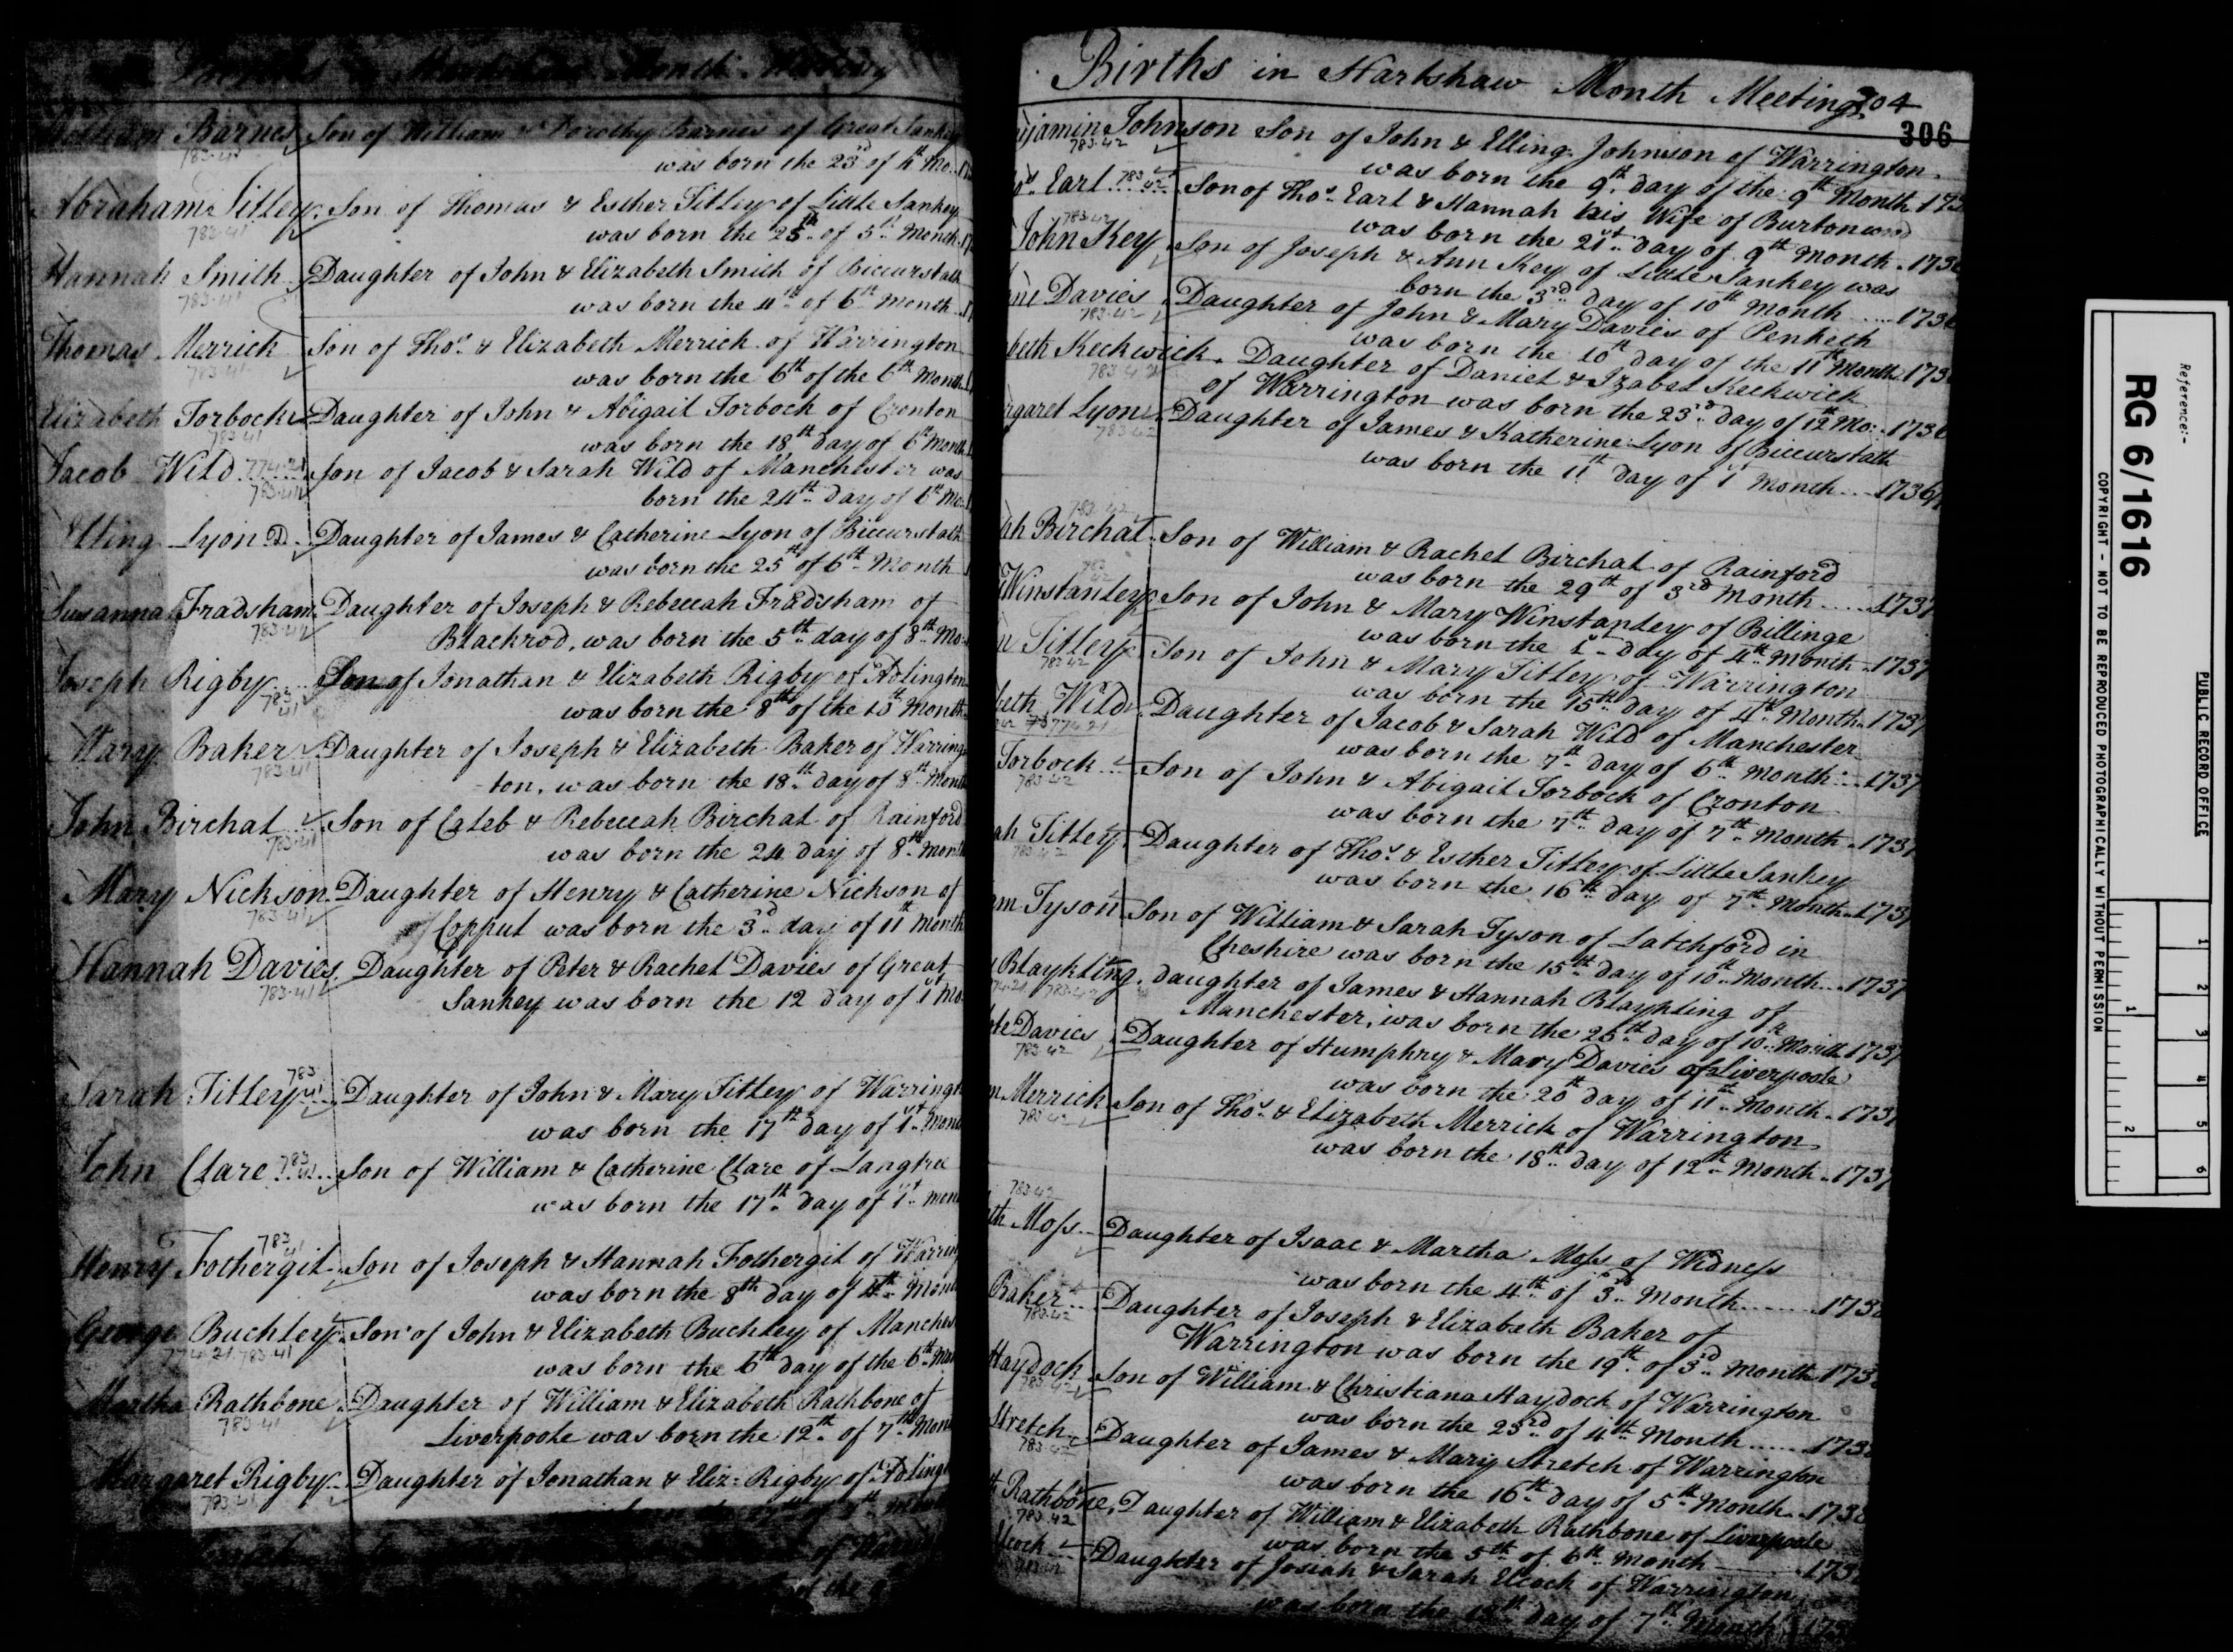 William Barnes Son of William & Dorothy Barnes of Great Sankey
783-41
was born the 23d of 4th Mo.
Abraham Titley Son of Thomas & Esther Titley of Little Sankey
783-41
was born the 25th of 5th Month
Hannah Smith Daughter of John & Elizabeth Smith of Biccurstath
783-41
was born the 4th of 6th Month
Thomas Merrick Son of Thos. & Elizabeth Merrick of Warrington
783-41
was born the 6th of the 6th Month
Elizabeth Torbock Daughter of John & Abigail Torbock of Cronton
783-41
was born the 18th day of 6th Month
Jacob Wild 774-21 Son of Jacob & Sarah Wild of Manchester was
783-41
born the 24th day of 6th Mo
Elling Lyon Daughter of James & Catherine Lyon of Biccurstath
was born the 25th of 6th Month
Susanna Fradsham Daughter of Joseph & Rebeccah Fradsham of
783-41
Blackrod, was born the 5th day of 8th Mo
Joseph Rigby Son of Jonathan & Elizabeth Rigby of Adlington
783
41
was born the 8th of the 10th Month
Mary Baker Daughter of Joseph & Elizabeth Baker of Warring
783-41
-ton, was born the 18th day of 8th Month
John Birchal Son of Caleb & Rebeccah Birchal of Rainford
783-41
was born the 24 day of 8th Mont
Mary Nickson Daughter of Henry & Catherine Nickson of
783-41
Copput was born the 3d day of 11th Month
Hannah Davies Daughter of Peter & Rachel Davies of Great
783-41
Sankey was born the 12 day of 1st Mo
Sarah Titley 783 41 Daughter of John & Mary Titley of Warringt
was born the 17th day of 1st Mon
John Clare 783 Son of William & Catherine Clare of Langtree
was born the 17th day of 1st Mon
783
41
Henry Fothergil Son of Joseph & Hannah Fothergil of Warring
was born the 8th day of 4th Mon
George Buchley Son of John & Elizabeth Buchley of Manches
774-21 783-41
was born the 6th day of the 6th Mon
Martha Rathbone Daughter of William & Elizabeth Rathbone of
783-41
Liverpoole was born the 12th of 7th Mon
Margaret Rigby Daughter of Jonathan & Eliz: Rigby of Adlingt
783-41
Births in Hartshaw Month Meeting 304
306
njamin Johnson Son of John & Elling Johnson of Warrington
783-42
was born the 9th day of the 9th Month 173
os. Earl 783 42 Son of Thos. Earl & Hannah his Wife of Burtonwood
was born the 21st day of 9th Month 1736
783-42
John Key Son of Joseph & Ann Key of Little Sankey was
born the 3rd day of 10th Month 1736
ne Davies Daughter of John & Mary Davies of Penketh
783-42
was born the 10th day of the 11th Month 1736
beth Keckwick Daughter of Daniel & Izabel Keckwick
783-42
of Warrington was born the 23rd day of 12th Mo: 1736
rgaret Lyon Daughter of James & Katherine Lyon of Biccurstath
783-42
was born the 11th day of 1st Month 1736/
783-42
ah Birchal Son of William & Rachel Birchal of Rainford
was born the 29th of 3rd Month 1737
783
42
Winstanley Son of John & Mary Winstanley of Billinge
was born the 1st day of 4th Month 1737
n Titley Son of John & Mary Titley of Warrington
783 42
was born the 15th day of 4th Month 1737
beth Wild Daughter of Jacob & Sarah Wild of Manchester
774 21
was born the 7th day of 6th Month 1737
Torbock Son of John & Abigail Torbock of Cronton
783-42
was born the 7th day of 7th Month 1737
ah Titley Daughter of Thos. & Esther Titley of Little Sankey
783-42
was born the 16th day of 7th Month 1737
am Tyson Son of William & Sarah Tyson of Latchford in
Cheshire was born the 15th day of 10th Month 1737
Blaykling daughter of James & Hannah Blaykling of
74-21 783-42
Manchester, was born the 26th day of 10th Month 1737
te Davies Daughter of Humphry & Mary Davies of Liverpoole
783-42
was born the 20th day of 11th Month 1737
m Merrick Son of Thos. & Elizabeth Merrick of Warrington
783-42
was born the 18th day of 12th Month 1737
783-42
th Moss Daughter of Isaac & Martha Moss of Widness
was born the 4th of 3rd Month 173
Baker Daughter of Joseph & Elizabeth Baker of
783-42
Warrington was born the 19th of 3d Month 173
Haydock Son of William & Christiana Haydock of Warrington
783-42
was born the 23rd of 4th Month 173
Stretch Daughter of James & Mary Stretch of Warrington
783-42
was born the 16th day of 5th Month 1738
th Rathbone Daughter of William & Elizabeth Rathbone of Liverpoole
783-42
was born the 5th of 6th Month 173
lcock Daughter of Josiah & Sarah Elcock of Warrington
783-42
was born the day of 7th Month 173
Reference:-
RG 6/1616
PUBLIC RECORD OFFICE
COPYRIGHT - NOT TO BE REPRODUCED PHOTOGRAPHICALLY WITHOUT PERMISSION
1 2 3 4 5 6
1 2